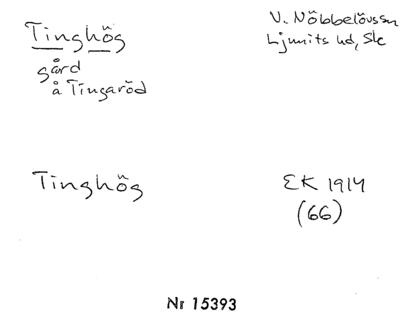 Tinghög
V. Nöbbelövssn
gård
Ljunits hd, Sk
å Tingaröd
Tinghög
EK 1914
(66)
Nr 15393